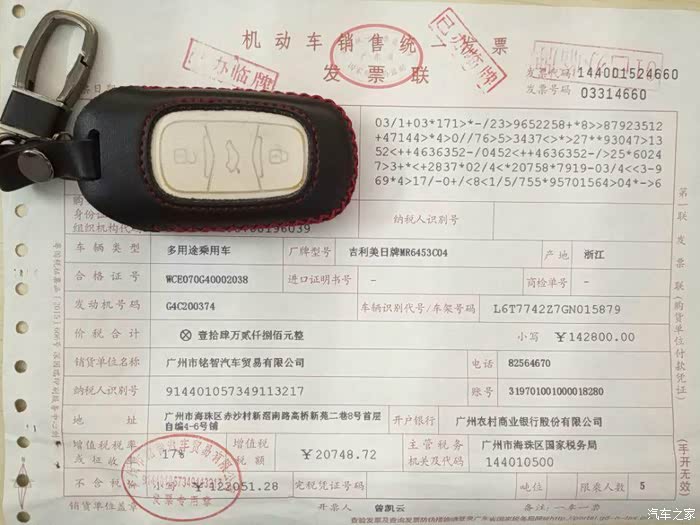 机动车销售统一发票
发票联
已办临牌
已办临牌
发票代码 144001524660
发票号码 03314660
03/1+03*171>*-/23>9652258+*8>>87923512
+47144>*4>0//76>5>3437<>*>27**93047>13
52<++4636352-/0452<++4636352-/>25*6024
7>3+*<+2837*02/4<*20758*7919-03/4<<3-9
69*4>17/-0+/<8<1/5/755*95701564>04*->6
纳税人识别号
组织机构代码
车辆类型 多用途乘用车 厂牌型号 吉利美日牌MR6453C04 产地 浙江
合格证号 WCE070G40002038 进口证明书号 - 商检单号 -
发动机号码 G4C200374 车辆识别代号/车架号码 L6T7742Z7GN015879
价税合计 ⊗壹拾肆万贰仟捌佰元整 小写 ￥142800.00
销货单位名称 广州市铭智汽车贸易有限公司 电话 82564670
纳税人识别号 914401057349113217 账号 319701001000018280
地址 广州市海珠区赤沙村新滘南路高桥新苑二巷8号首层
自编4-6号铺 开户银行 广州农村商业银行股份有限公司
增值税税率
或征收 17% 增值税
税额 ￥20748.72 主管税务
机关及代码 广州市海珠区国家税务局
144010500
不含税 小写 ￥122051.28 完税凭证号码 吨位 限乘人数 5
销货单位盖章 开票人 曾凯云 备注：一车一票
发票专用章
第一联 发票联（购货单位付款凭证）
（手开无效）
汽车之家